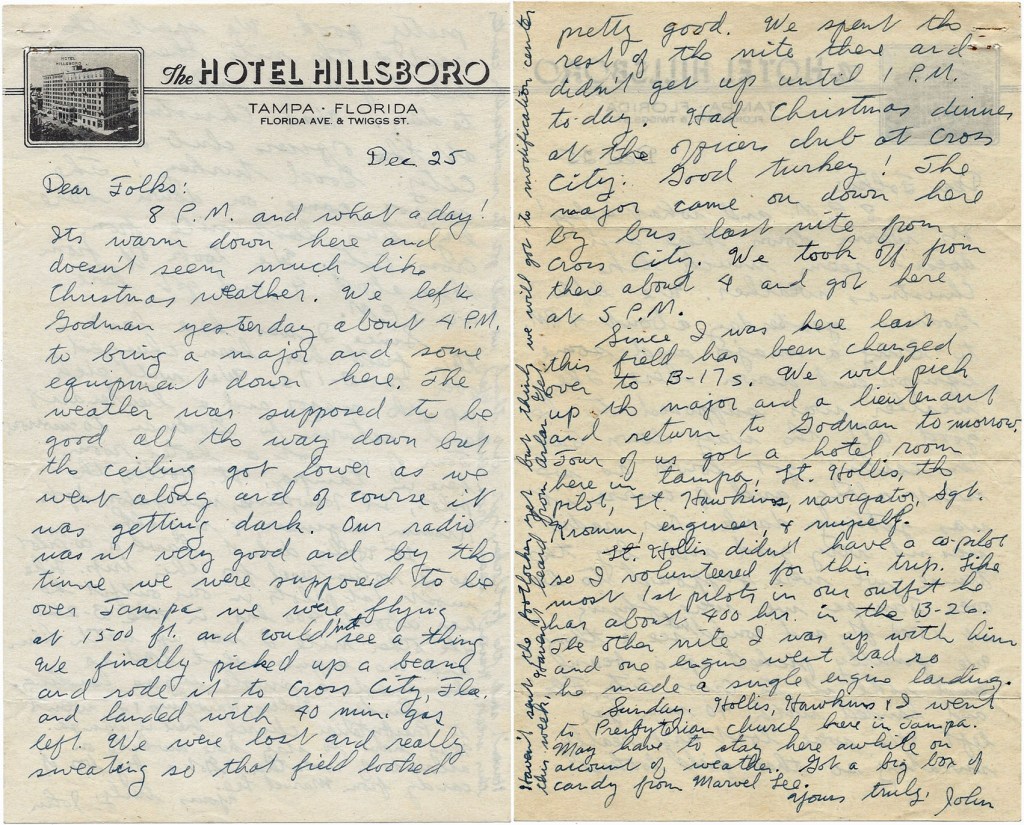 HOTEL HILLSBORO
The HOTEL HILLSBORO
TAMPA · FLORIDA
FLORIDA AVE. & TWIGGS ST.
Dec 25
Dear Folks:
8 P.M. and what a day!
Its warm down here and
doesn't seem much like
Christmas weather. We left
Godman yesterday about 4 P.M.
to bring a major and some
equipment down here. The
weather was supposed to be
good all the way down but
the ceiling got lower as we
went along and of course it
was getting dark. Our radio
wasnt very good and by the
time we were supposed to be
over Tampa we were flying
at 1500 ft. and couldnt see a thing
We finally picked up a beam
and rode it to Cross City, Fla.
and landed with 40 min. gas
left. We were lost and really
sweating so that field looked
pretty good. We spent the
rest of the nite there and
didn't get up until 1 P.M.
to-day. Had Christmas dinner
at the officers club at Cross
City. Good turkey! The
major came on down here
by bus last nite from
Cross City. We took off from
there about 4 and got here
at 5 P.M.
Since I was here last
this field has been changed
over to B-17s. We will pick
up the major and a lieutenant
and return to Godman to-morrow.
Four of us got a hotel room
here in Tampa, Lt. Hollis, the
pilot, Lt. Hawkins, navigator, Sgt.
Kromm, engineer, & myself.
Lt. Hollis didn't have a co-pilot
so I volunteered for this trip. Like
most 1st pilots in our outfit he
has about 400 hrs. in the B-26.
The other nite I was up with him
and one engine went bad so
he made a single engine landing.
Sunday. Hollis, Hawkins & I went
to Presbyterian church here in Tampa.
May have to stay here awhile on
account of weather. Got a big box of
candy from Marvel Lee.
Yours truly, John
Haven't sent the footlocker yet but think we will go to modification center
this week. Haven't heard from Arlan yet.